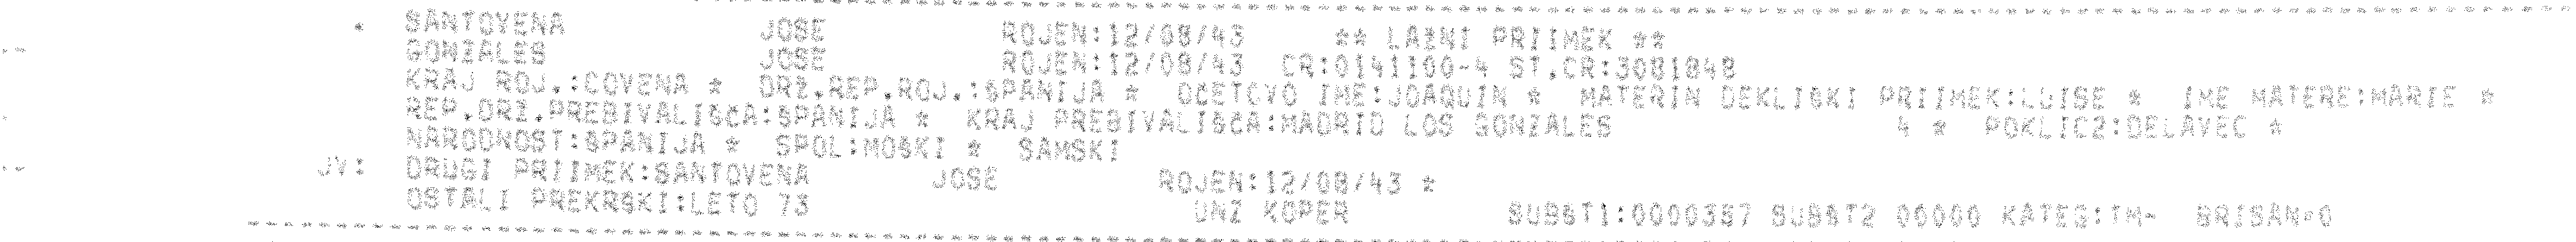 . SANTOVENA JOSE ROJEN:12/08/43 ** LAZNI PRIIMEK **
GONZALES JOSE ROJEN:12/08/43 CR:0141100-4 ST.CR:3081848
KRAJ ROJ.:COVENA * DRZ.REP.ROJ.:SPANIJA * OCETOVO IME:JOAQUIN * MATERIN DEKLISKI PRIIMEK:LUISE * IME MATERE:MARIE *
REP.DRZ.PREBIVALISCA:SPANIJA * KRAJ PREBIVALISCA:MADRID LOS GONZALES 4 * POKLIC2:DELAVEC *
NARODNOST:SPANIJA * SPOL:MOSKI * SAMSKI
JV: DRUGI PRIIMEK:SANTOVENA JOSE ROJEN:12/08/43 *
OSTALI PREKRSKI:LETO 73 UNZ KOPER SUBST1:0000357 SUBST2 00000 KATEG:TM- BRISAN=0